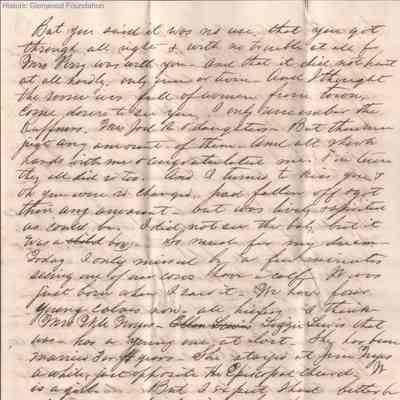 Historic Glenwood Foundation
But you said it was no use, that you got
through all right & with no trouble at all &
Mrs Perry was with you - And that it did not hurt
at all hardly, only now or then - And I thought
the room was full of women from town,
come down to see you, I only remember the
Ruffners. Mrs Joel & daughters - But there was
just any amount of them - And all shook
hands with me & congratulated me.
they all did so too. And I turned to kiss you, &
oh you were so changed, had fallen off
than any amount - but was lively
as could be. I did not see the baby but it
was a boy. So much for my dream -
Today I only missed by a few minutes
seeing one of our cows have a calf. It was
just born when I saw it - We have four
young calves now - all heifers I think -
Mrs Noyes - Lewis that
was - has a young one, at last. She has been
married for years - She stayed at
a while, just opposite the Episcopal church, It
is a girl. But I expect I had better